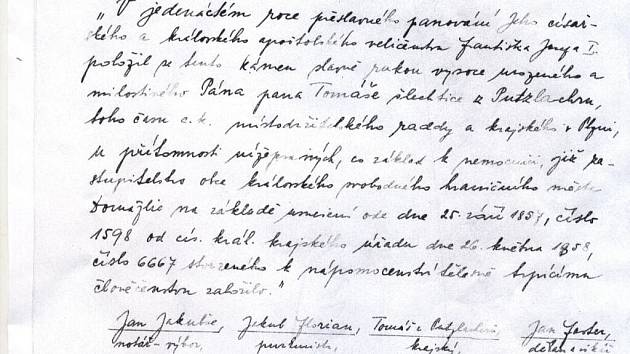 „V jedenáctém roce přeslavného panování Jeho císař-
ského a královského apoštolského veličenstva Františka Josefa I.
položil se tento kámen slavně rukou vysoce urozeného a
milostivého Pána pana Tomáše šlechtice z Putzlachru,
toho času c. k. místodržitelského raddy a krajského v Plzni,
u přítomnosti nížepsaných, co základ k nemocnici, již za-
stupitelstvo obce královského svobodného hraničního města
Domažlic na základě usnešení ode dne 25. září 1857, číslo
1598 od cís. král. krajského úřadu dne 26. května 1858,
číslo 6667 stvrzeného k nápomocenství tělesně trpícímu
člověčenstvu založilo."
Jan Jakubic, Jakub Florian, Tomáš z Putzlachrů, Jan Forster,
notář-výbor, purkmistr, krajský, děkan a vikář